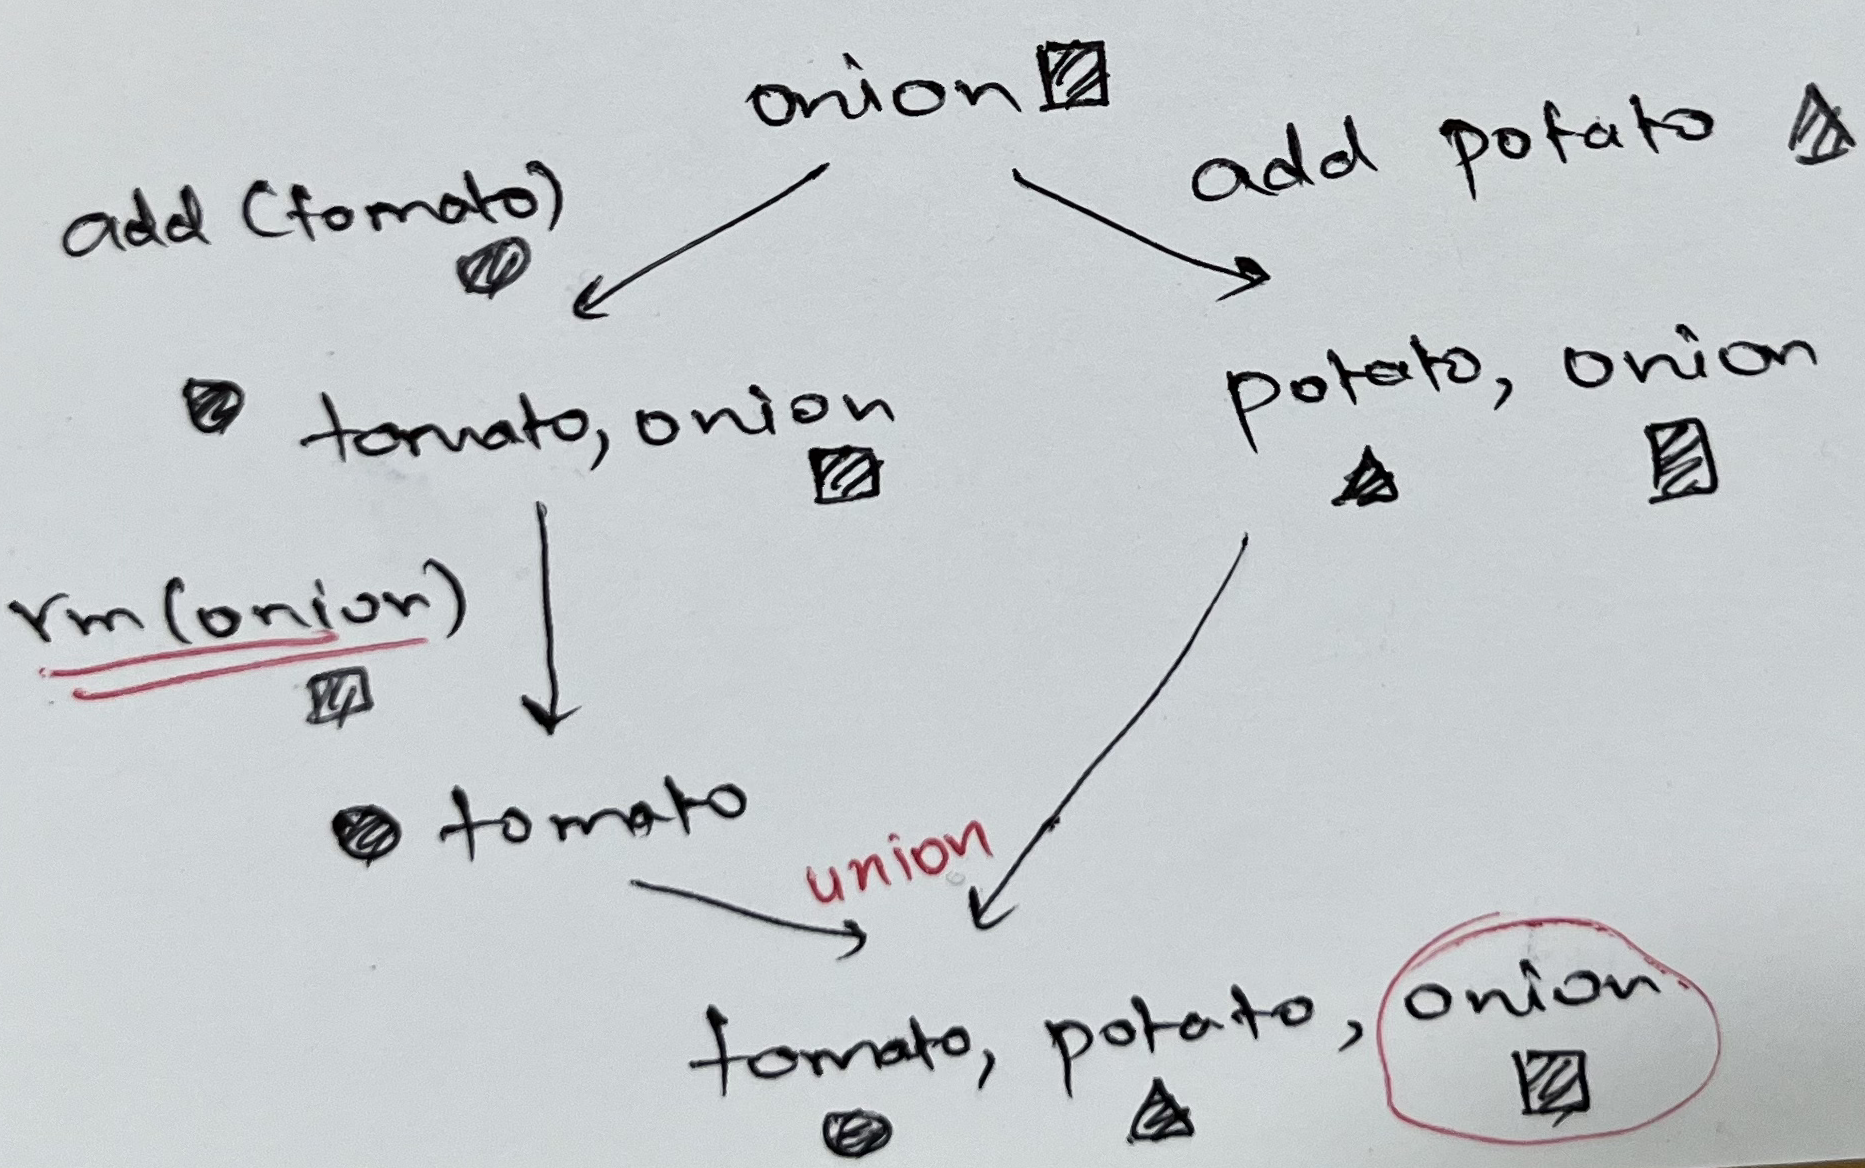 onion
add potato
add (tomato)
potato, onion
tomato, onion
rm(onion)
tomato
union
tomato, potato, onion